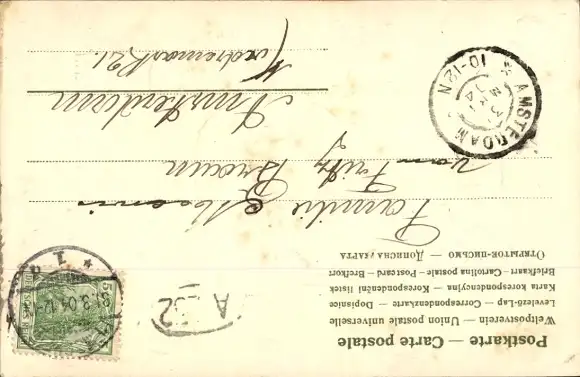 Postkarte — Carte postale
Weltpostverein — Union postale universelle
Levelező-Lap — Correspondenzkarte — Dopisnice
Karta korespondencyjna — Korespondenční lístek
Briefkaart — Cartolina postale — Postcard — Brefkort
Открытое-письмо — Дописна карта
Familie
van Fritz Braun
Amsterdam
21.
AMSTERDAM
10-12N
31.3.04.12-
A 32
5